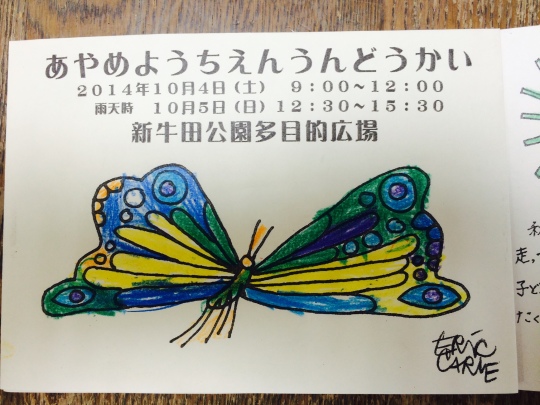 あやめようちえんうんどうかい
2014年10月4日(土) 9:00~12:00
雨天時 10月5日(日)12:30~15:30
新牛田公園多目的広場
ERIC
CARLE
走っ
子ど
たく